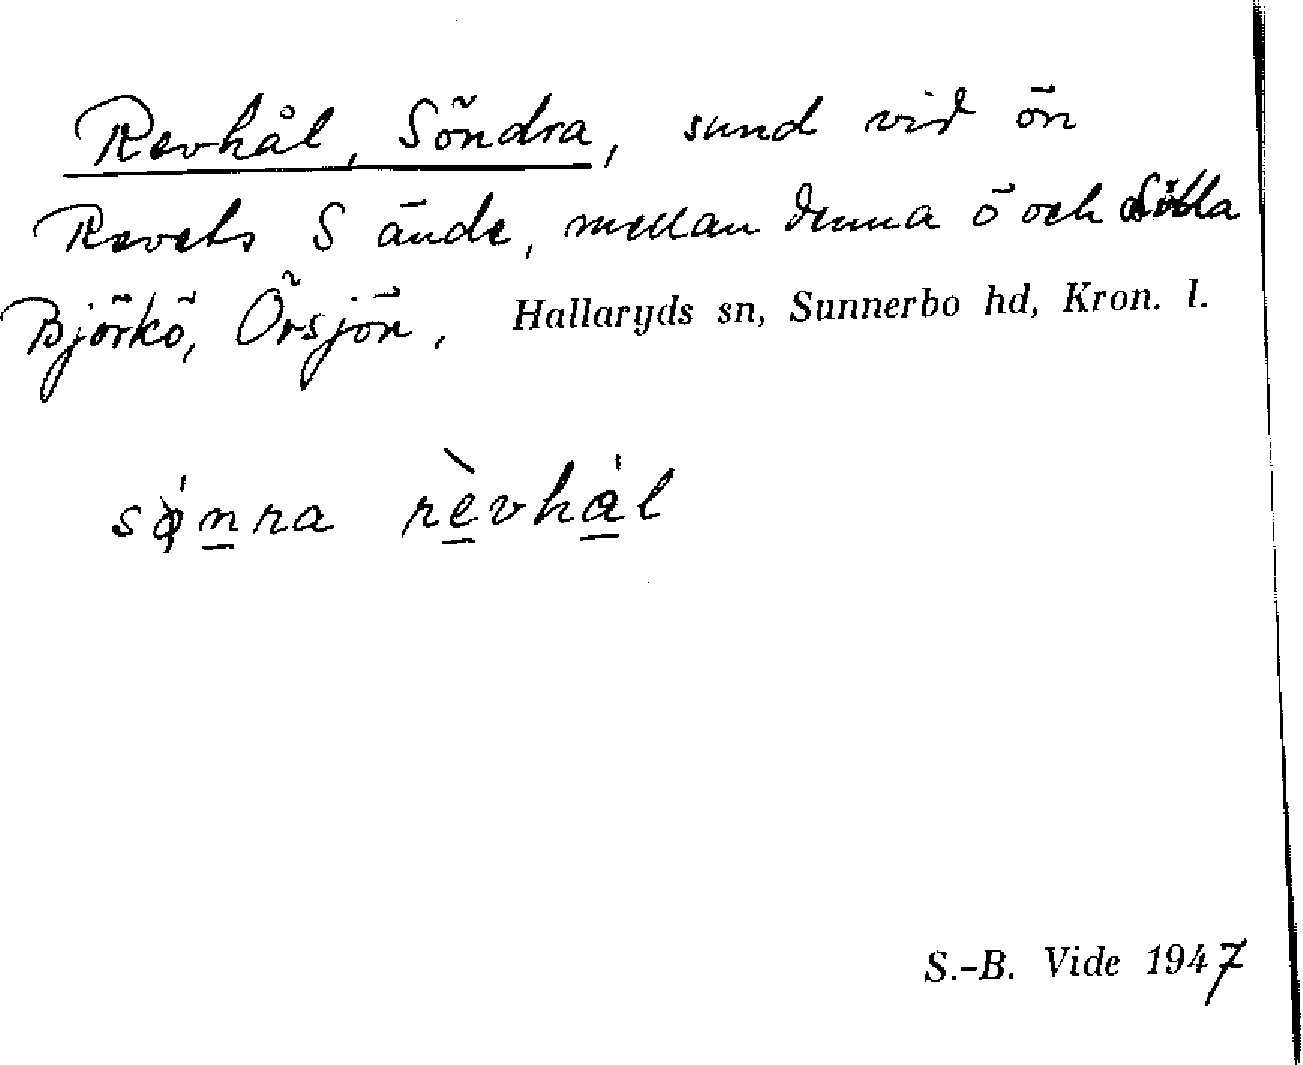 Revhål, Söndra, sund vid ön
Revets S ände, mellan denna ö och
Björkö, Örsjön, Hallaryds sn, Sunnerbo hd, Kron. l.
rèvhál
S.-B. Vide 1947